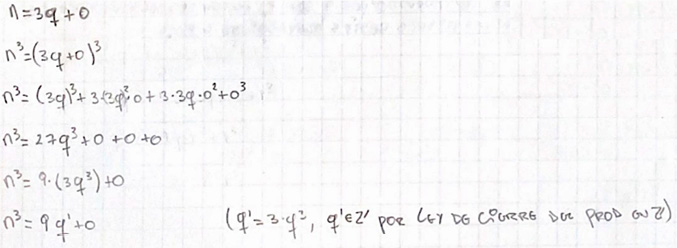 n=3q+0
n³=(3q+0)³
n³=(3q)³+3·(3q)²·0+3·3q·0²+0³
n³=27q³+0+0+0
n³=9·(3q³)+0
n³=9q'+0 (q'=3·q³, q'∈Z POR LEY DE CIERRE DEL PROD EN Z)